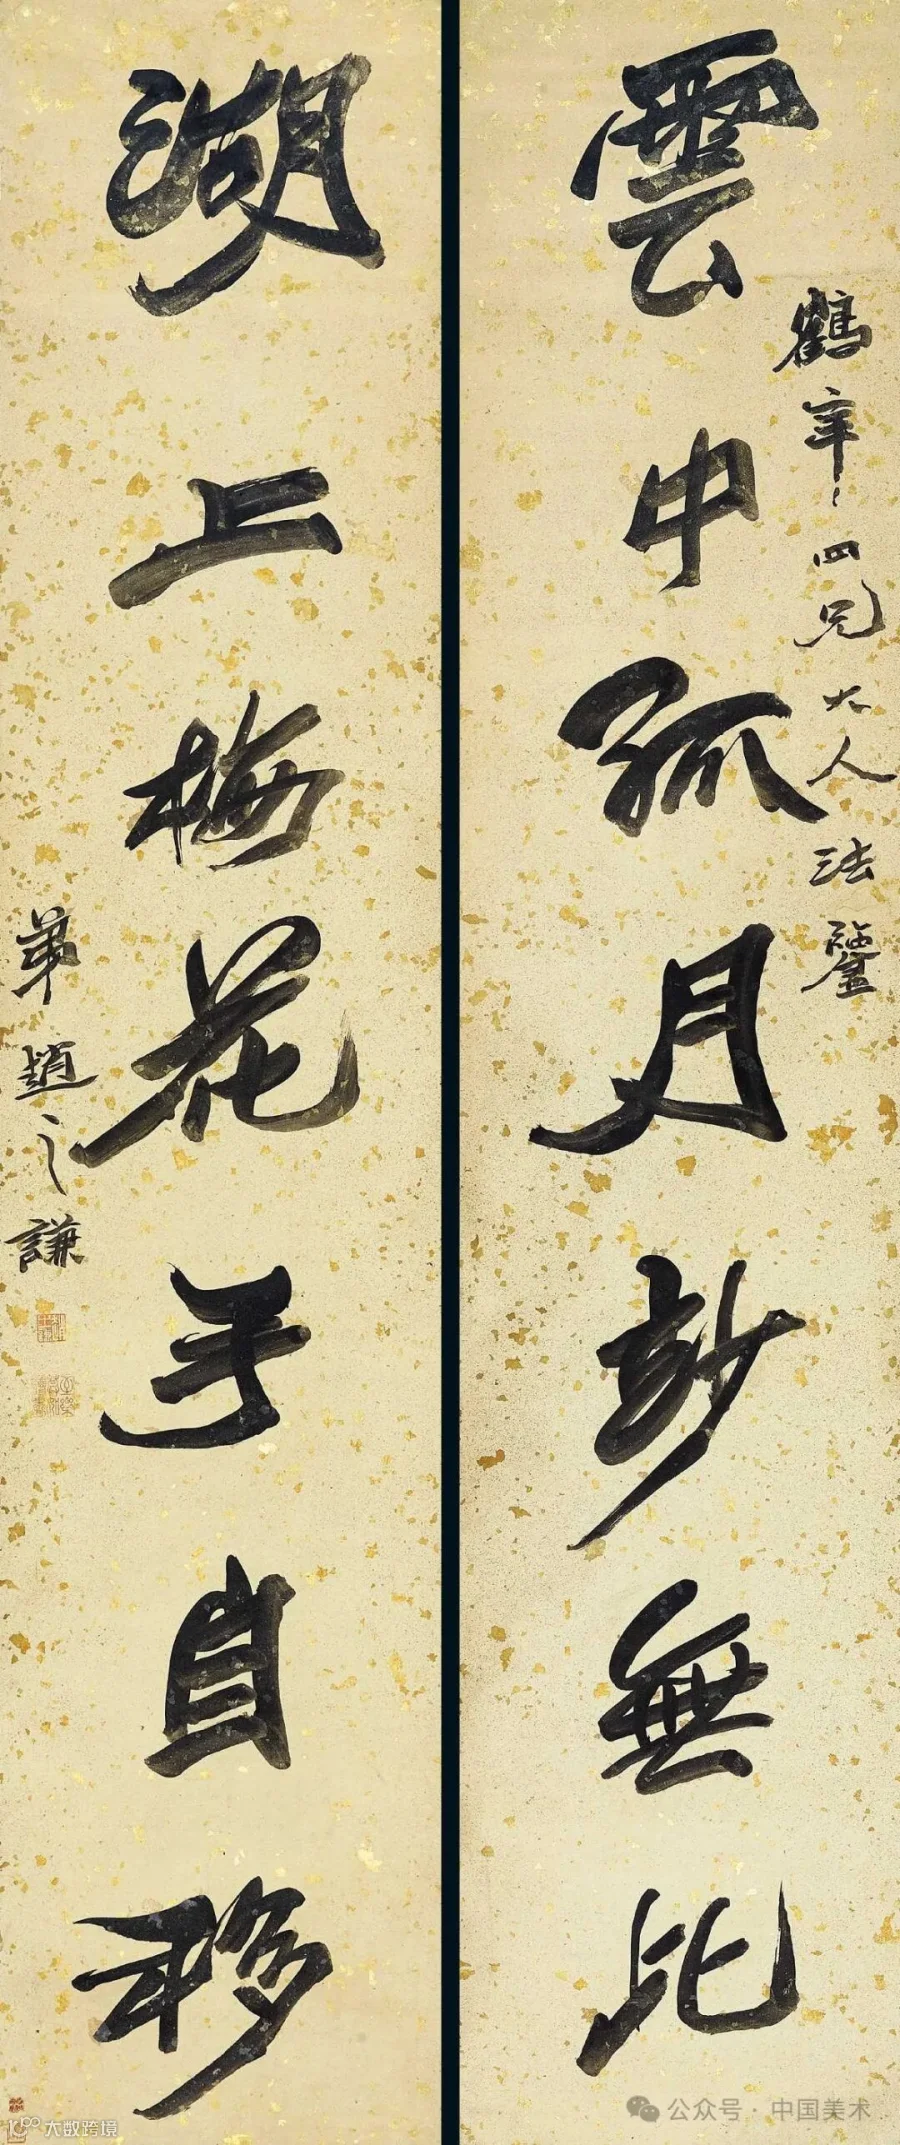 鶴年四兄大人法鑒
雲中孤月妙無比
湖上梅花手自移
弟趙之謙
公众号·中国美术
大数跨境